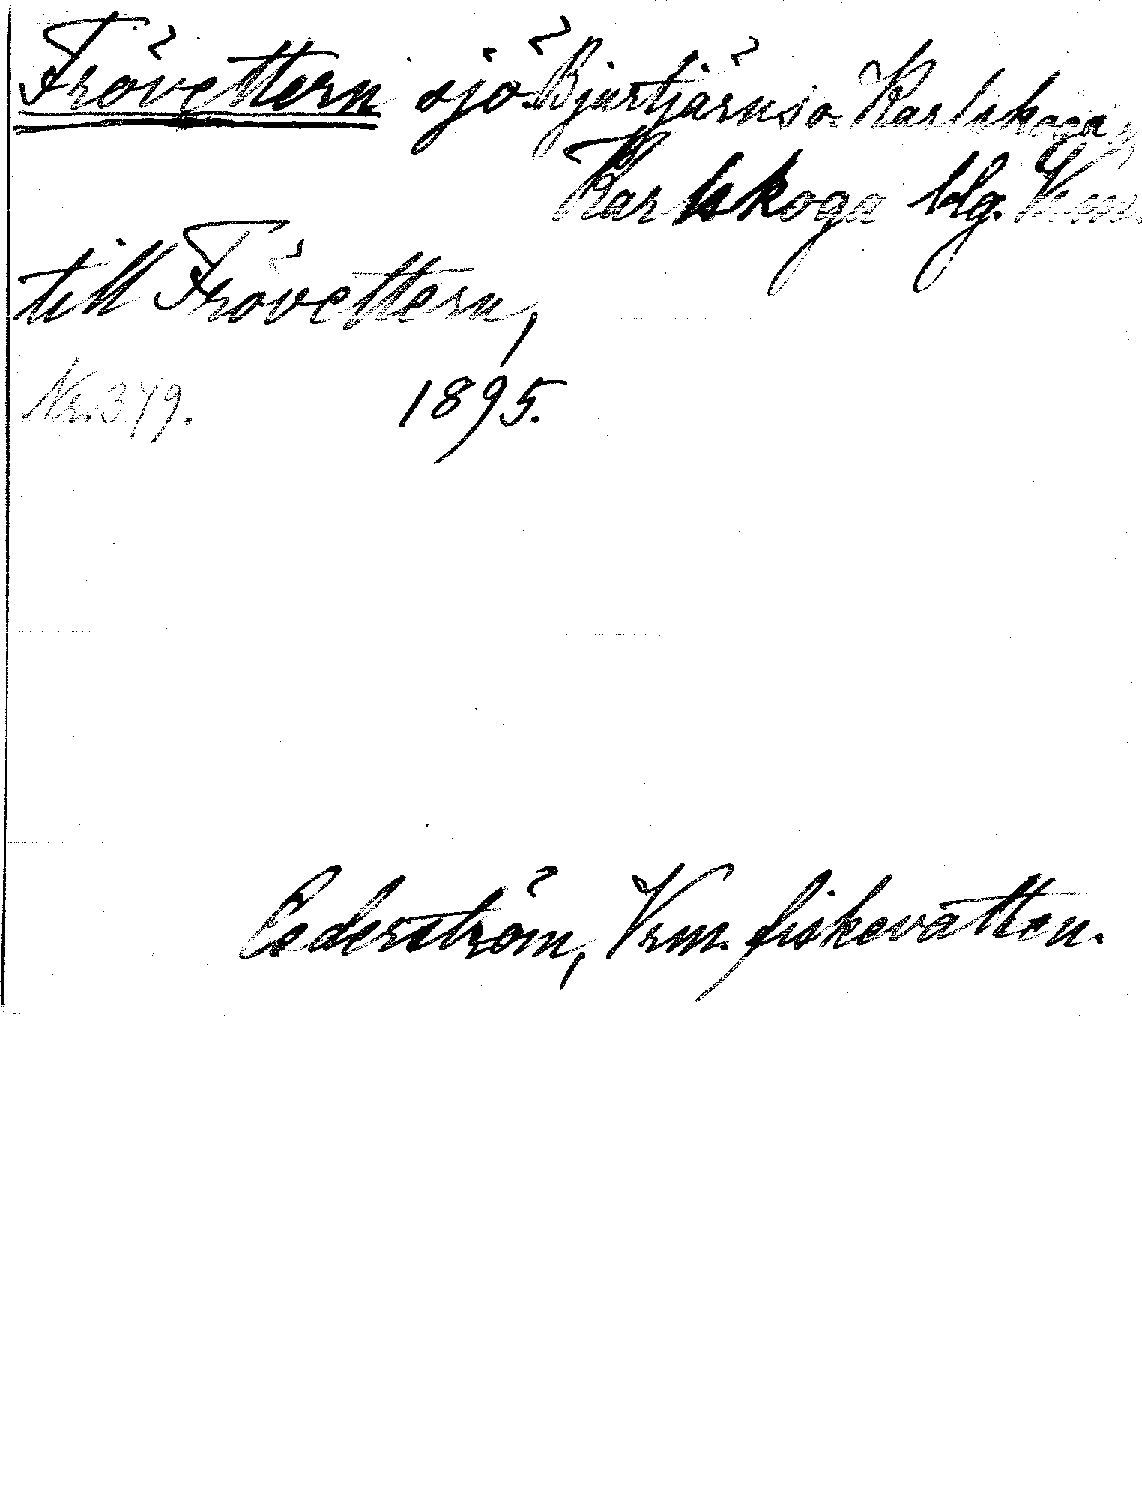 Frövettern sjö Bjurtjärns o. Karlskoga
Karlskoga blg. Vrm.
till Frövettern,
Nr. 349. 1895.
Cederström, Vrm. fiskevatten.